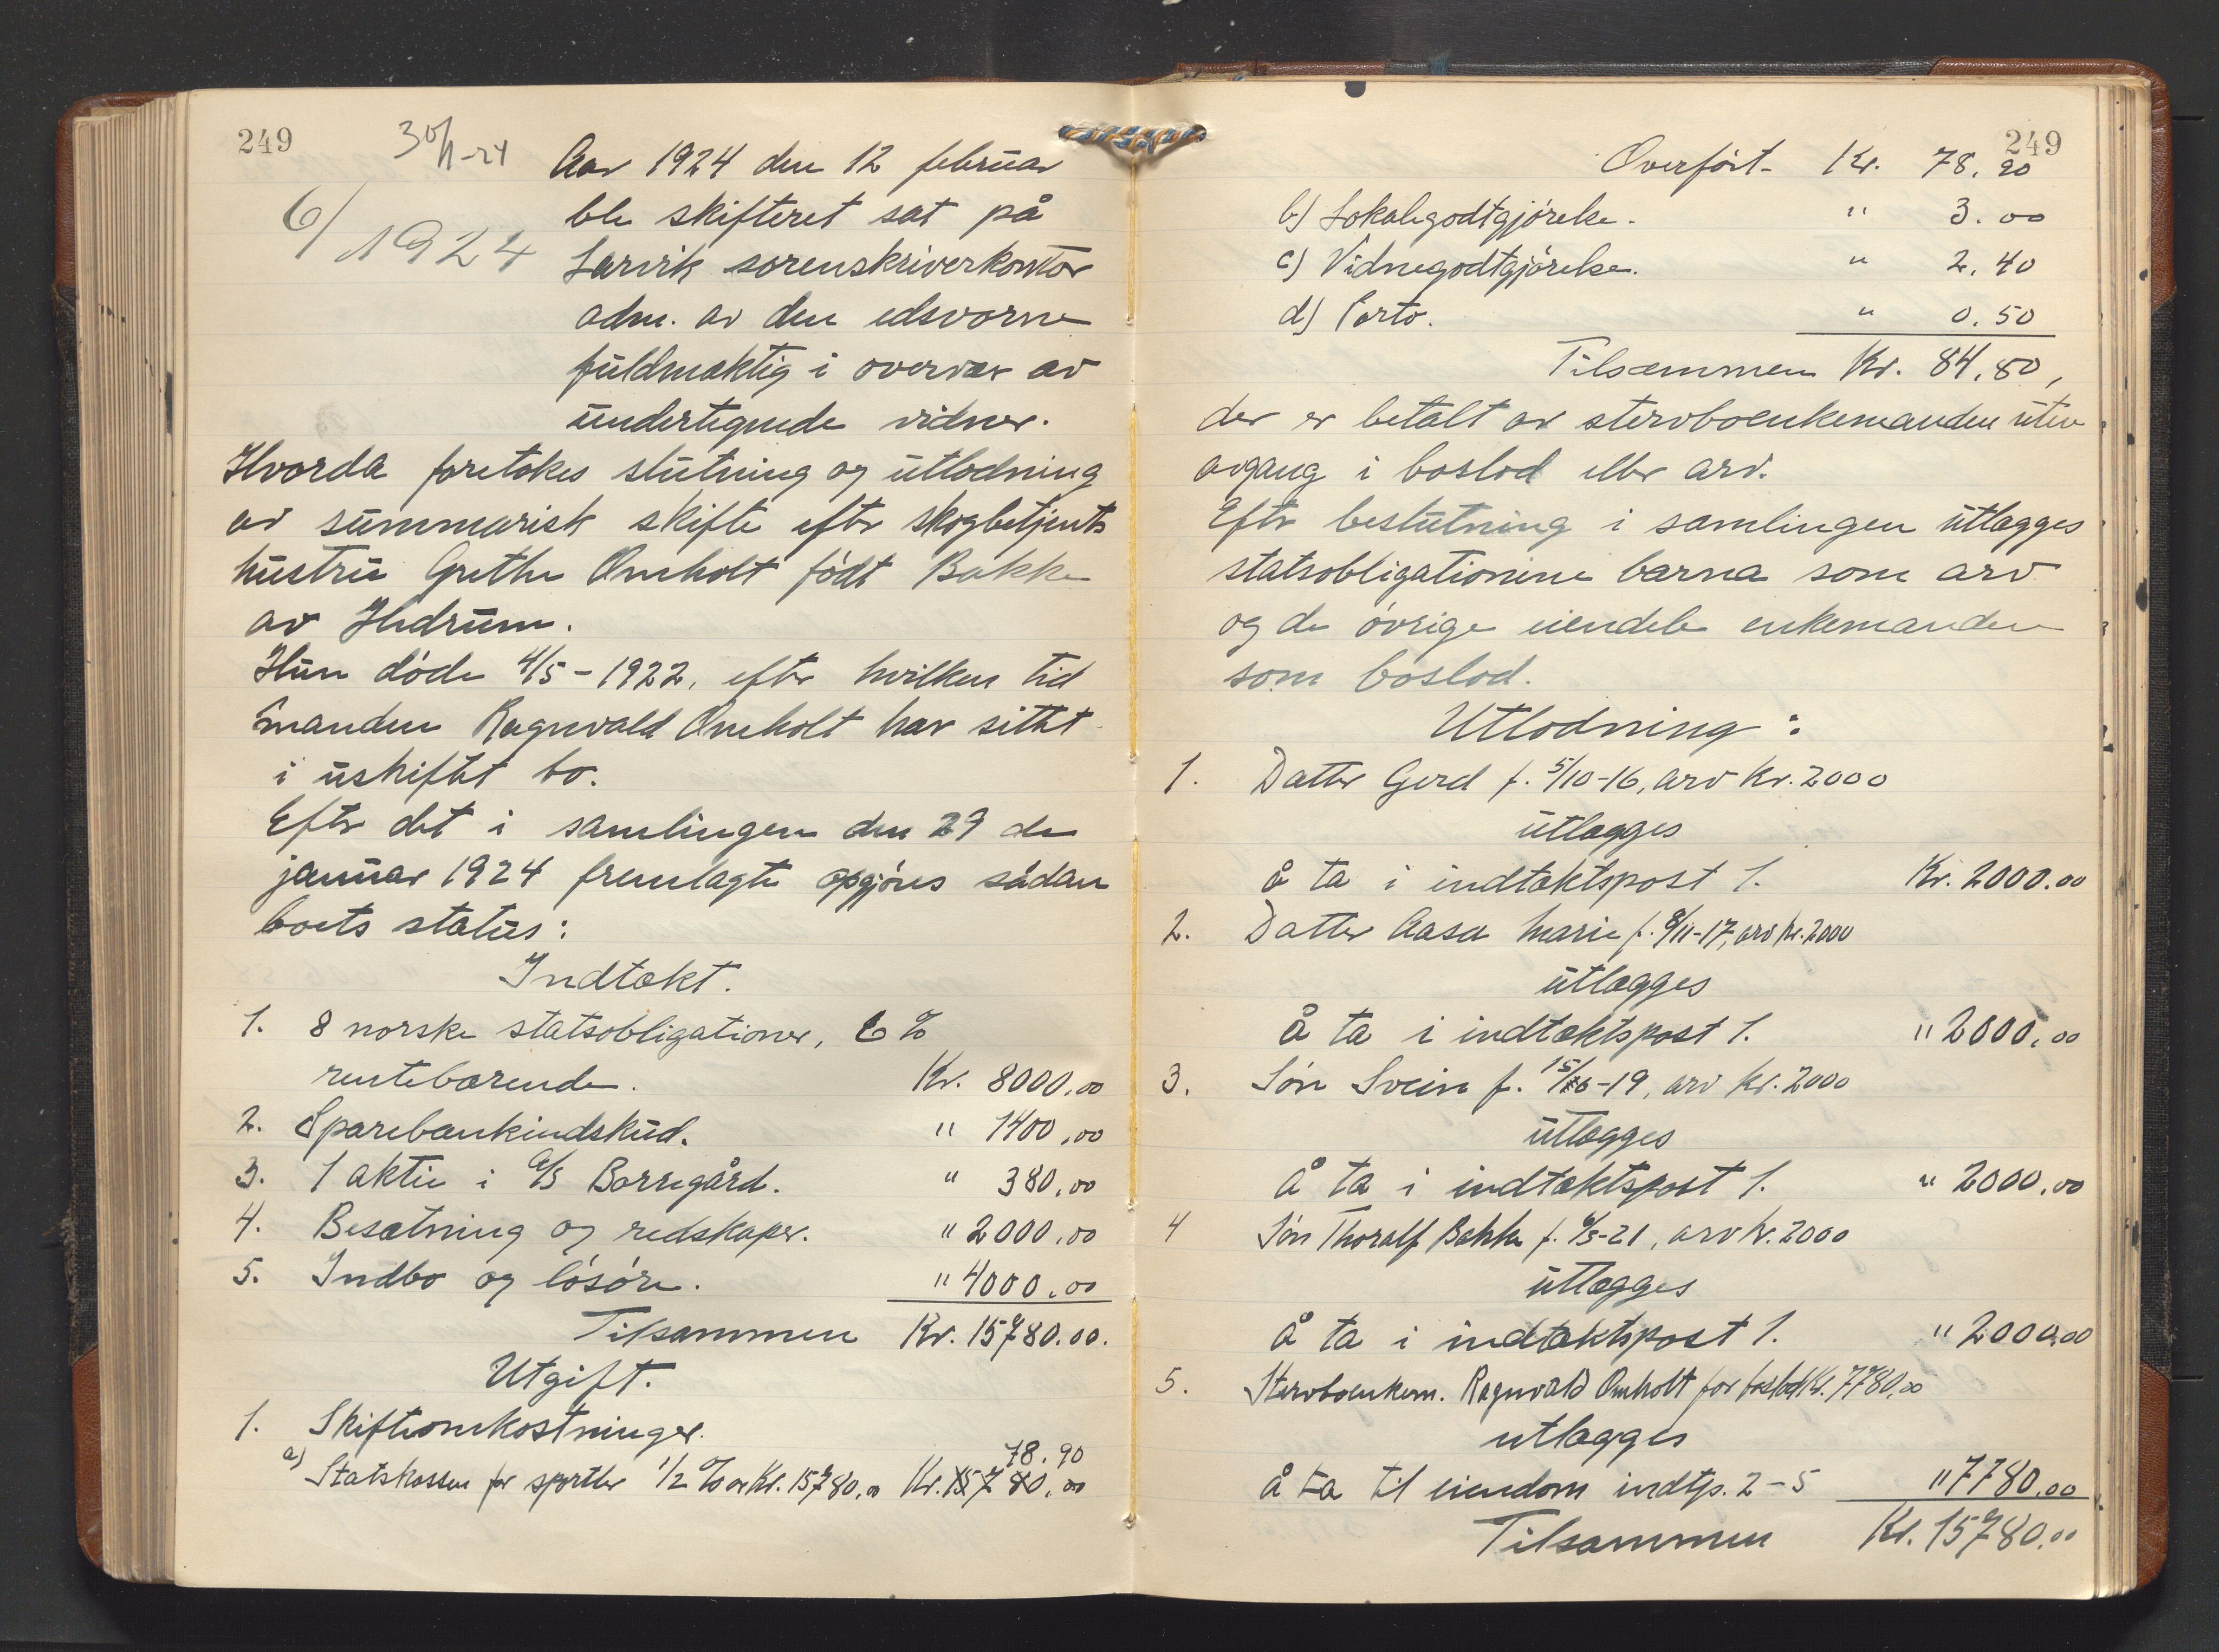 249
30/1-24
6/1924
Aar 1924 den 12 februar
ble skifteret sat på
Larvik sorenskriverkontor
adm. av den edsvorne
fuldmæktig i overvær av
undertegnede vidner.
Hvorda foretokes slutning og utlodning
av summarisk skifte efter skogbetjents
hustru Grethe Omholt født Bakke
av Hedrum.
Hun døde 4/5-1922, efter hvilken tid
manden Ragnvald Omholt har sittet
i uskiftet bo.
Efter det i samlingen den 29 de
januar 1924 fremlagte opgjøres sådan
boets status:
Indtækt.
1. 8 norske statsobligationer, 6 %
rentebærende. Kr. 8000.00
2. Sparebankindskud. " 1400.00
3. 1 aktie i A/S Borregård. " 380.00
4. Besætning og redskaper. " 2000.00
5. Indbo og løsøre. " 4000.00
Tilsammen Kr. 15780.00.
Utgift.
1. Skifteomkostninger.
78.90
a) Statskassen for sportler 1/2 % av Kr. 15780.00 Kr. 15780.00
249
Overført Kr. 78.90
b) Lokalegodtgjørelse. " 3.00
c) Vidnegodtgjørelse. " 2.40
d) Porto. " 0.50
Tilsammen Kr. 84.80,
der er betalt av stervboenkemanden uten
avgang i boslod eller arv.
Efter beslutning i samlingen utlægges
statsobligationene barna som arv
og de øvrige eiendele enkemanden
som boslod.
Utlodning:
1. Datter Gerd f. 5/10-16, arv Kr. 2000
utlægges
å ta i indtæktspost 1. Kr. 2000.00
2. Datter Aasa Marie f. 9/11-17, arv Kr. 2000
utlægges
å ta i indtæktspost 1. " 2000.00
3. Søn Svein f. 15/6-19, arv Kr. 2000
utlægges
å ta i indtæktspost 1. " 2000.00
4 Søn Thoralf Bakke f. 6/5-21, arv Kr. 2000
utlægges
å ta i indtæktspost 1. " 2000.00
5. Stervboenkem. Ragnvald Omholt for boslod Kr. 7780.00
utlægges
å ta til eiendom indtp. 2-5 " 7780.00
Tilsammen Kr. 15780.00